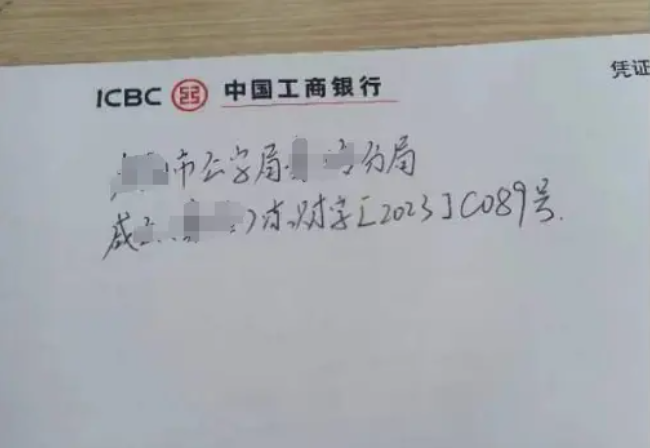 ICBC 中国工商银行
凭证
市公安局 分局
咸 财字[2023]C089号